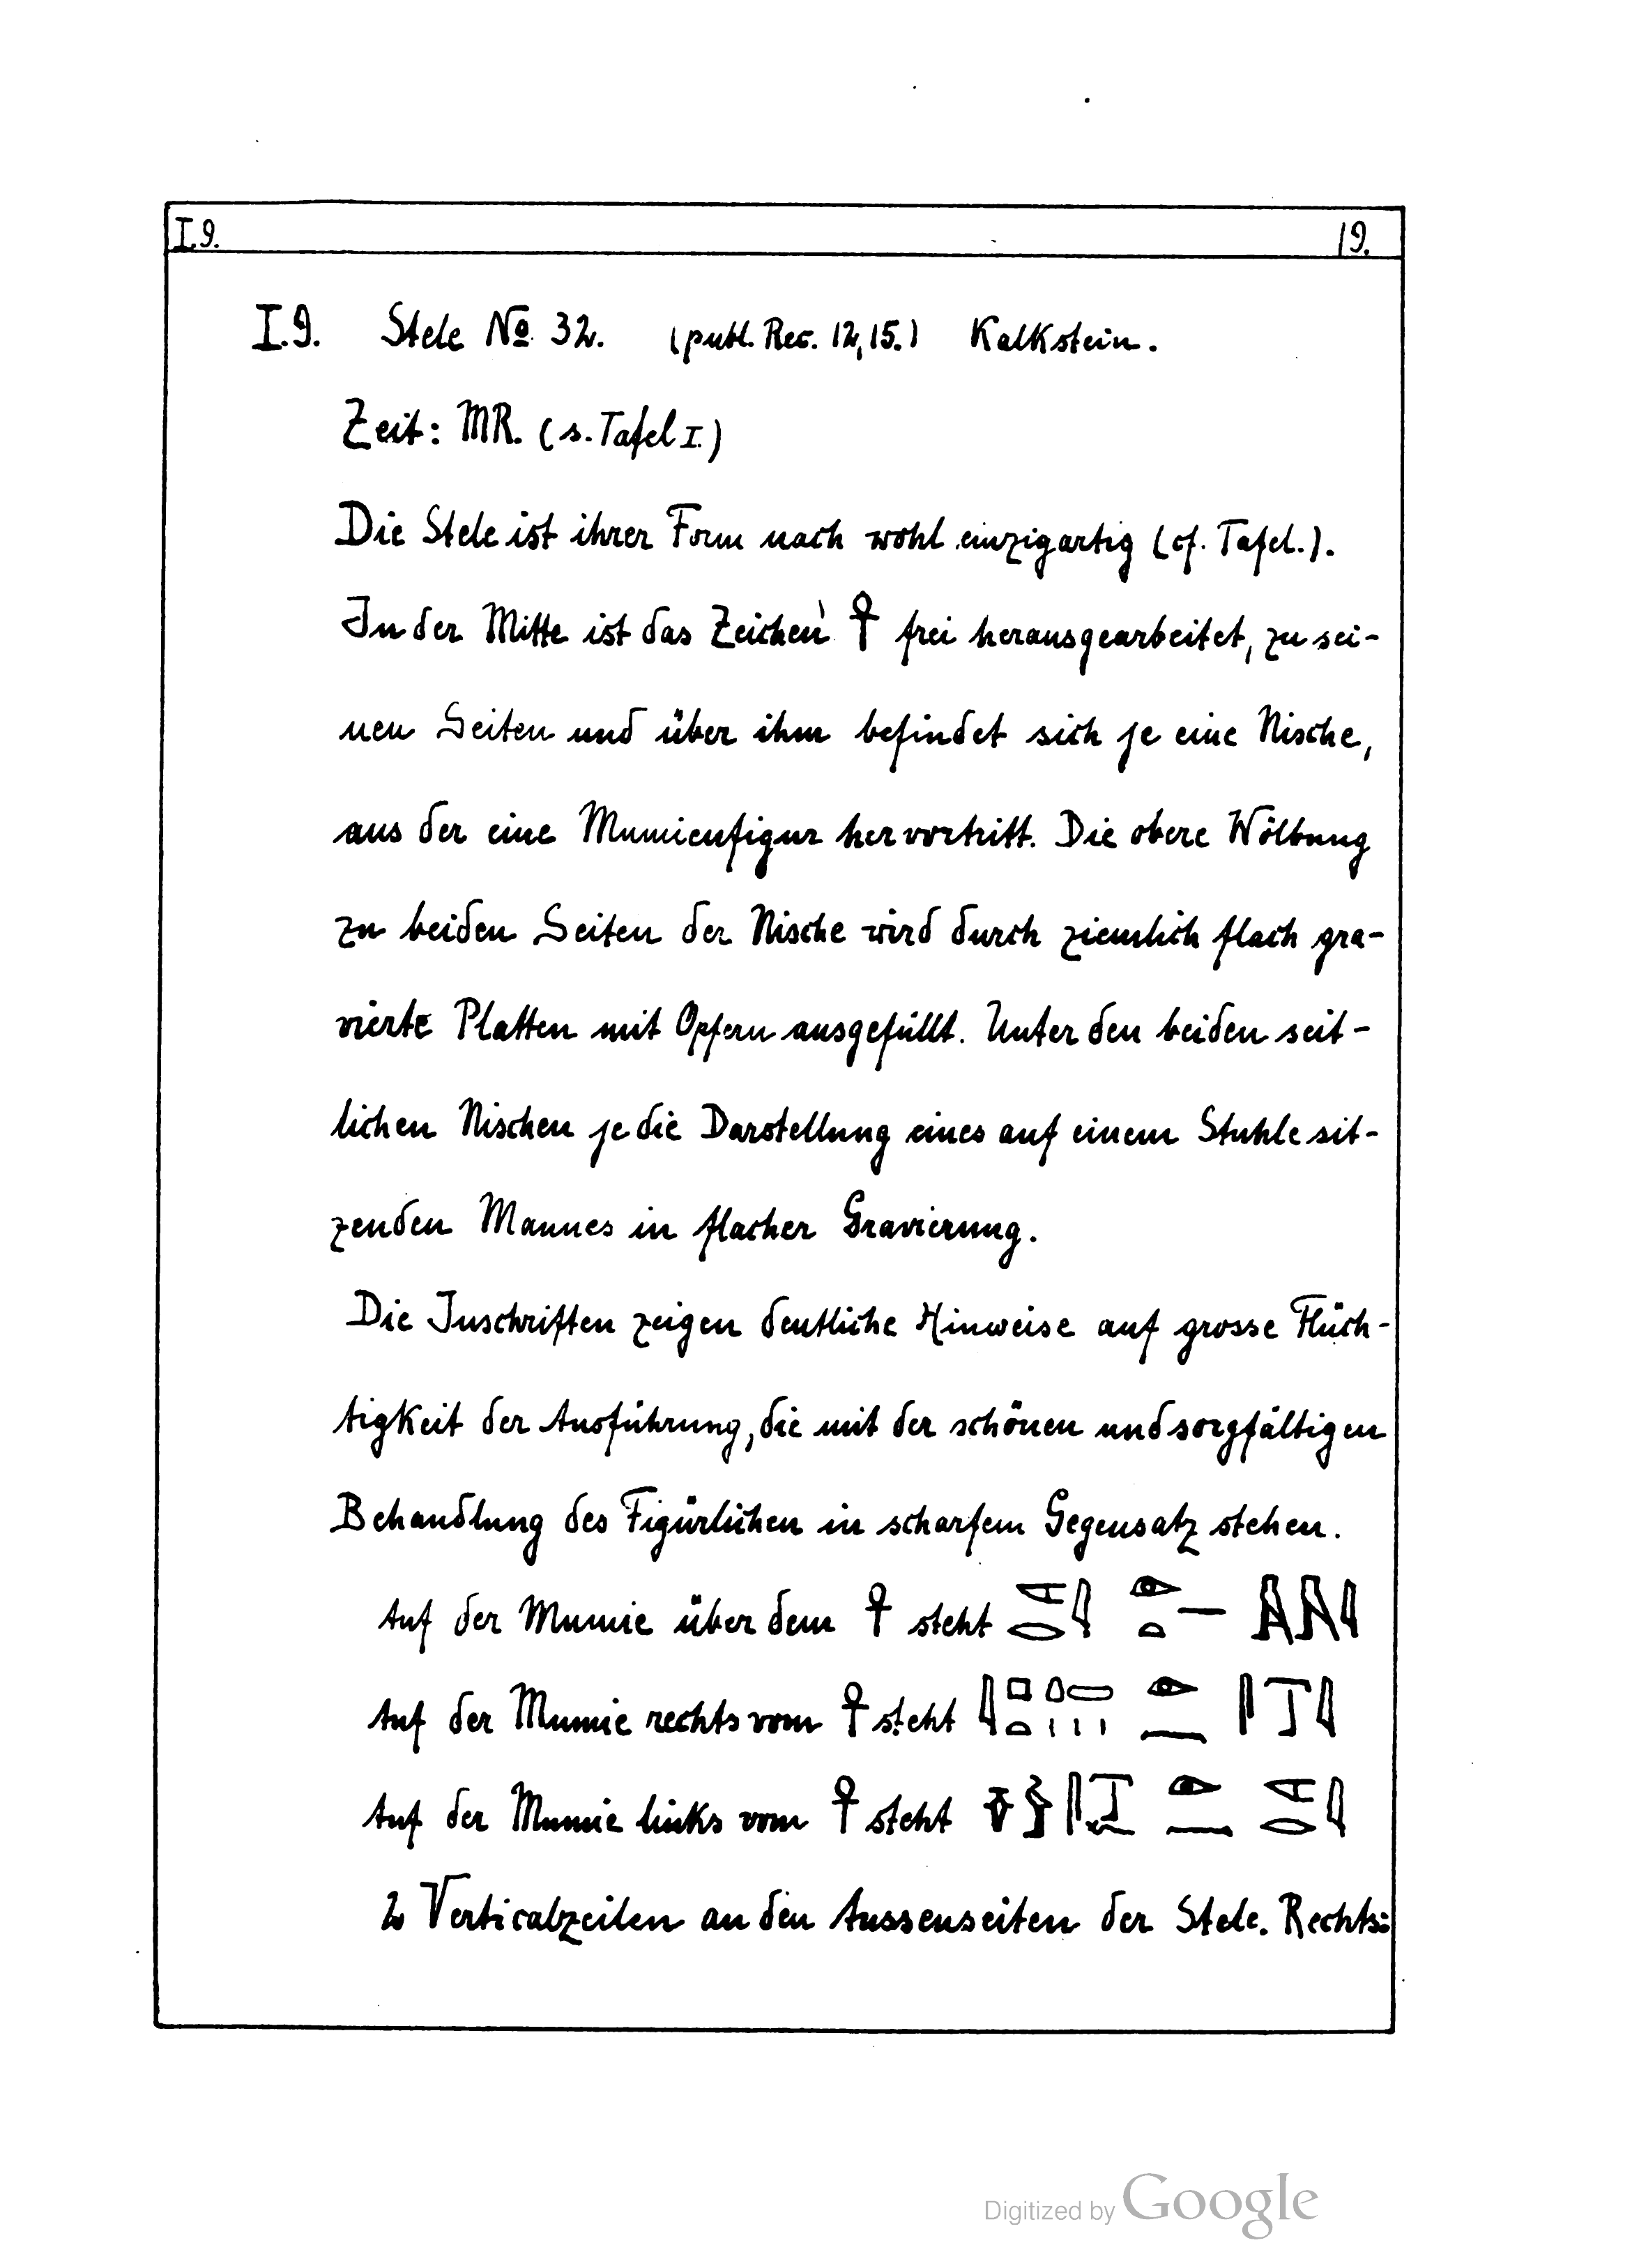 I.9. 19.
I.9. Stele No 32. (publ. Rec. 12,15.) Kalkstein.
Zeit: MR. (s. Tafel I.)
Die Stele ist ihrer Form nach wohl einzigartig (cf. Tafel.).
In der Mitte ist das Zeichen 𓋹 frei herausgearbeitet, zu sei-
nen Seiten und über ihm befindet sich je eine Nische,
aus der eine Mumienfigur hervortritt. Die obere Wölbung
zu beiden Seiten der Nische wird durch ziemlich flach gra-
vierte Platten mit Opfern ausgefüllt. Unter den beiden seit-
lichen Nischen je die Darstellung eines auf einem Stuhle sit-
zenden Mannes in flacher Gravierung.
Die Inschriften zeigen deutliche Hinweise auf grosse Flüch-
tigkeit der Ausführung, die mit der schönen und sorgfältigen
Behandlung des Figürlichen in scharfem Gegensatz stehen.
Auf der Mumie über dem 𓋹 steht
Auf der Mumie rechts vom 𓋹 steht
Auf der Mumie links vom 𓋹 steht
2 Verticalzeilen an den Aussenseiten der Stele. Rechts:
Digitized by Google